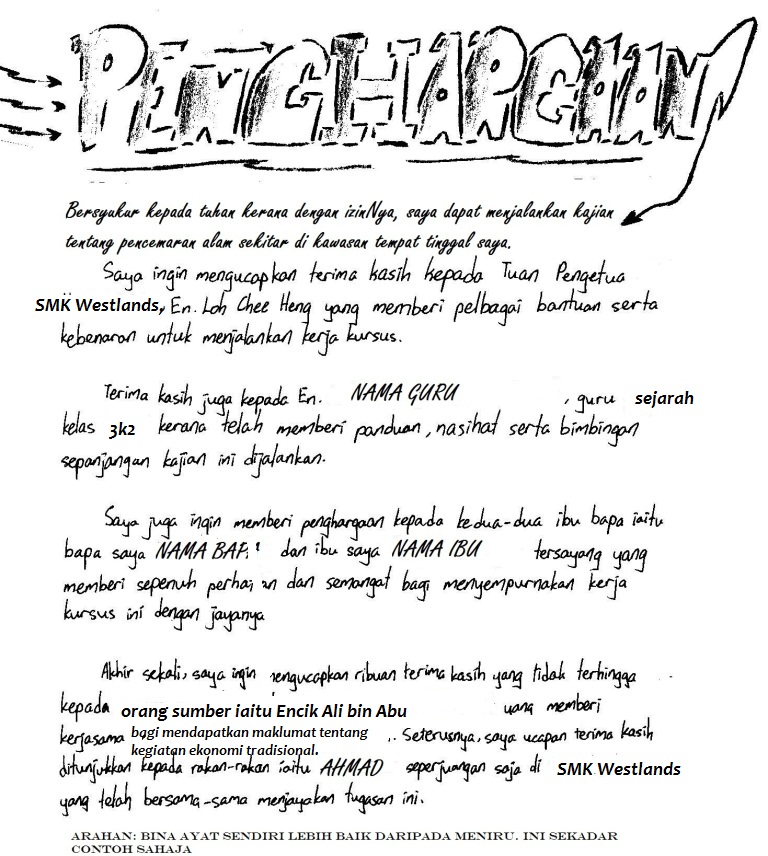 PENGHARGAAN
Bersyukur kepada tuhan kerana dengan izinNya, saya dapat menjalankan kajian
tentang pencemaran alam sekitar di kawasan tempat tinggal saya.
Saya ingin mengucapkan terima kasih kepada Tuan Pengetua
SMK Westlands, En. Loh Chee Heng yang memberi pelbagai bantuan serta
kebenaran untuk menjalankan kerja kursus.
Terima kasih juga kepada En. NAMA GURU , guru sejarah
kelas 3k2 kerana telah memberi panduan, nasihat serta bimbingan
sepanjangan kajian ini dijalankan.
Saya juga ingin memberi penghargaan kepada kedua-dua ibu bapa iaitu
bapa saya NAMA dan ibu saya NAMA IBU tersayang yang
memberi sepenuh dan semangat bagi menyempurnakan kerja
kursus ini dengan jayanya
Akhir sekali, saya ingin mengucapkan ribuan terima kasih yang tidak terhingga
kepada orang sumber iaitu Encik Ali bin Abu yang memberi
kerjasama bagi mendapatkan maklumat tentang
kegiatan ekonomi tradisional. . Seterusnya, saya ucapan terima kasih
ditunjukkan kepada rakan-rakan iaitu AHMAD seperjuangan saja di SMK Westlands
yang telah bersama-sama menjayakan tugasan ini.
ARAHAN: BINA AYAT SENDIRI LEBIH BAIK DARIPADA MENIRU. INI SEKADAR
CONTOH SAHAJA